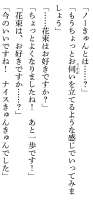 「ノーきゅんとは……？」
「もうちょっとお伺いを立てるような感じでいってみま
しょう」
「……花束はお好きですか？」
「ちょっとよくなりましたね！　あと一歩です！」
「花束は、お好きですか……？」
「今のいいですね！　ナイスきゅんきゅんでした」